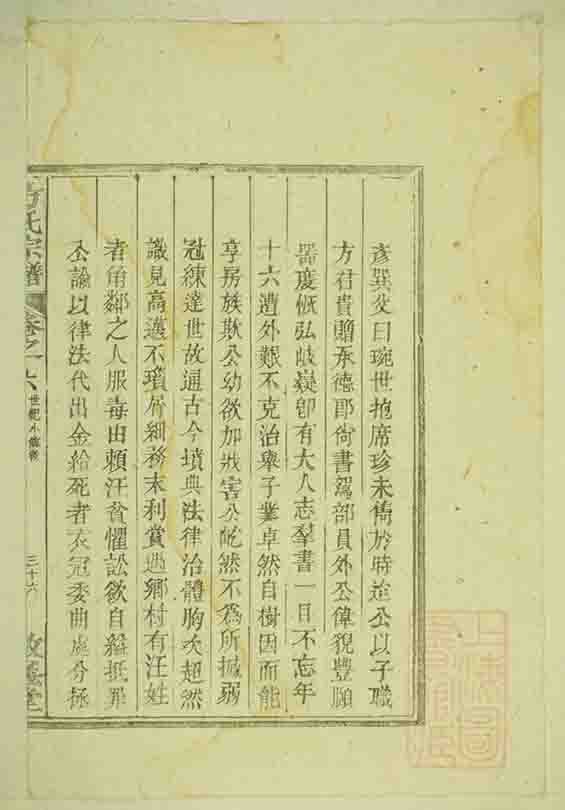 彥巽父曰琬世抱席珍未售於時迨公以子職
方君貴贈承德郎尚書駕部員外公偉貌豐頤
器度恢弘岐嶷卽有大人志羣書一目不忘年
十六遭外艱不克治舉子業卓然自樹因而能
亨房族欺公幼欲加戕害公屹然不爲所撼弱
冠練達世故通古今墳典法律治體胸次超然
識見高邁不瑣屑細務末利賞過鄉村有汪姓
者角鄰之人服毒由賴汪貧懼訟欲自縊抵罪
公諭以律法代出金給死者衣冠委曲處分拯
氏宗譜
卷之十六
世紀小傳
三十六
堂
上海圖